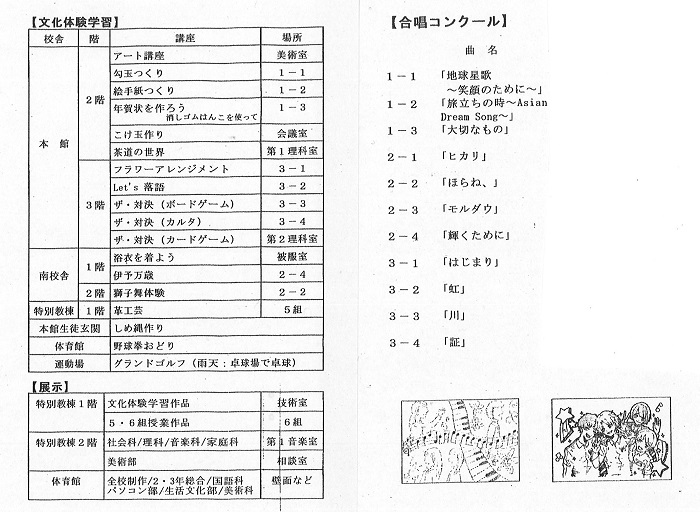 【文化体験学習】
校舎 階 講座 場所
本 館 2階 アート講座 美術室
勾玉つくり 1-1
絵手紙つくり 1-2
年賀状を作ろう 1-3
消しゴムはんこを使って
こけ玉作り 会議室
茶道の世界 第1理科室
3階 フラワーアレンジメント 3-1
Let's 落語 3-2
ザ・対決（ボードゲーム） 3-3
ザ・対決（カルタ） 3-4
ザ・対決（カードゲーム） 第2理科室
南校舎 1階 浴衣を着よう 被服室
伊予万歳 2-4
2階 獅子舞体験 2-2
特別教棟 1階 革工芸 5組
本館生徒玄関 しめ縄作り
体育館 野球拳おどり
運動場 グランドゴルフ（雨天：卓球場で卓球）
【展示】
特別教棟1階 文化体験学習作品 技術室
5・6組授業作品 6組
特別教棟2階 社会科/理科/音楽科/家庭科 第1音楽室
美術部 相談室
体育館 全校制作/2・3年総合/国語科 壁面など
パソコン部/生活文化部/美術科
【合唱コンクール】
曲 名
1-1 「地球星歌
～笑顔のために～」
1-2 「旅立ちの時～Asian
Dream Song～」
1-3 「大切なもの」
2-1 「ヒカリ」
2-2 「ほらね、」
2-3 「モルダウ」
2-4 「輝くために」
3-1 「はじまり」
3-2 「虹」
3-3 「川」
3-4 「証」